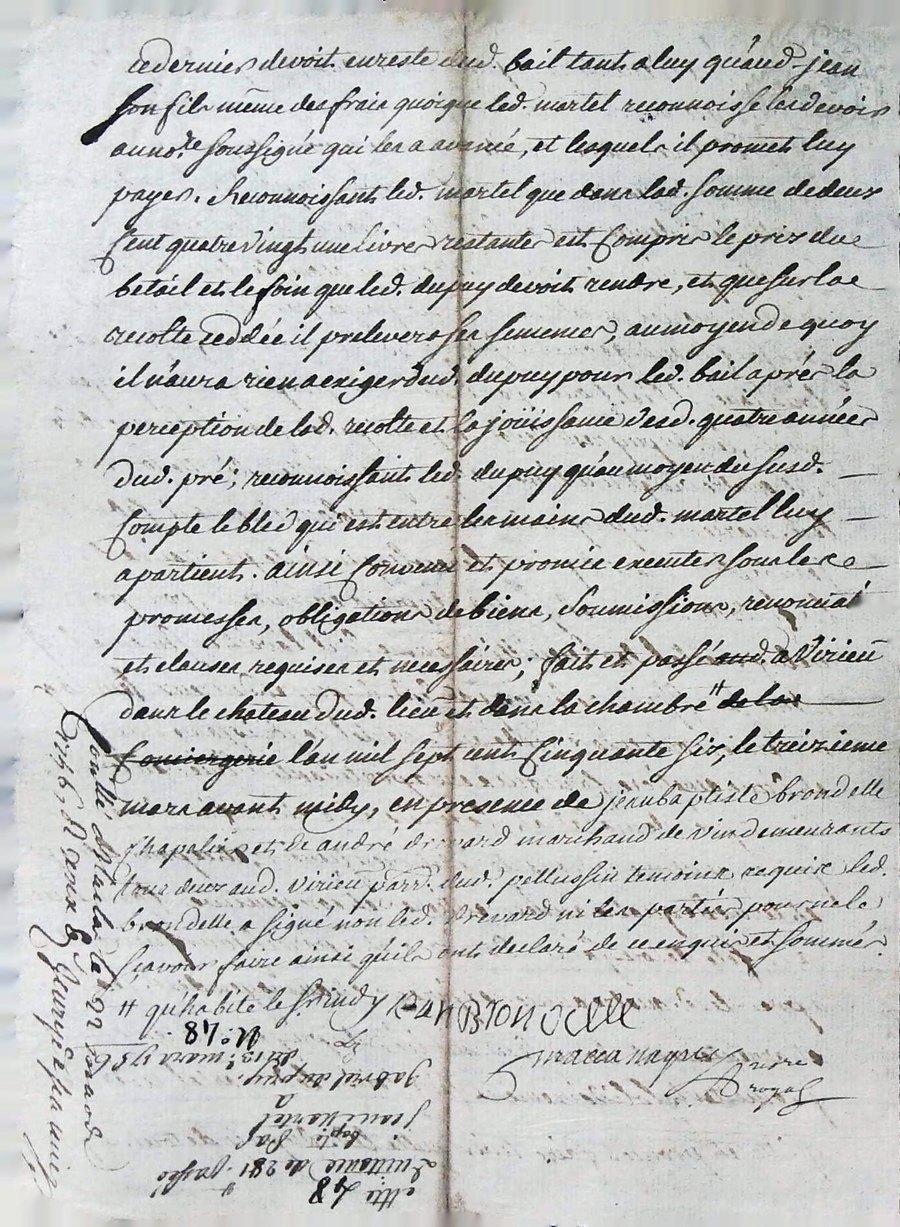 ce dernier devoit en reste dud. bail tant a luy qu'aud. jean
son fils même des frais quoique led. martel reconnoisse les devoir
au no.re soussigné qui les a avancé, et lesquels il promet luy
payer. Reconnoissant led. martel que dans lad. somme de deux
Cent quatre vingt une livres restantes est Compris le prix du
betail et le foin que led. dupuy devoit rendre, et que sur la
recolte cedée il prelevera ses semences, au moyen de quoy
il n'aura rien a exiger dud. dupuy pour led. bail aprés la
perception de lad. recolte et la joüissance desd. quatre années
dud. pré; reconnoissant led. dupuy qu'au moyen du susd.
Compte le bled qui est entre les mains dud. martel luy
apartient. ainsi Convenu et promis executer sous les
promesses, obligations de biens, Soumissions, renonciãt
et clauses requises et necessaires; fait et passé aud. a Virieu
dans le chateau dud. lieu et dans la chambre # de la
Conciergerie l'an mil sept cent Cinquante six, le treizieme
mars avant midy, en presence de jean baptiste brondelle
Chapelier et de andré drevard marchand de vin demeurants
tous deux aud. Virieu parr. dud. pellussin temoins requis led.
brondelle a signé non led. drevard ni les parties pour ne le
sçavoir faire ainsi qu'ils ont declaré de ce enquis et sommés
# qu'habite le Sindy
Jean Brondelle
no.re
royal
Controllé le 22 mars
1756, R
N.o 48.
du 13.e mars 1756
Gabriel dupuy
a
Jean martel
Quittance de 281.
Cotte 48